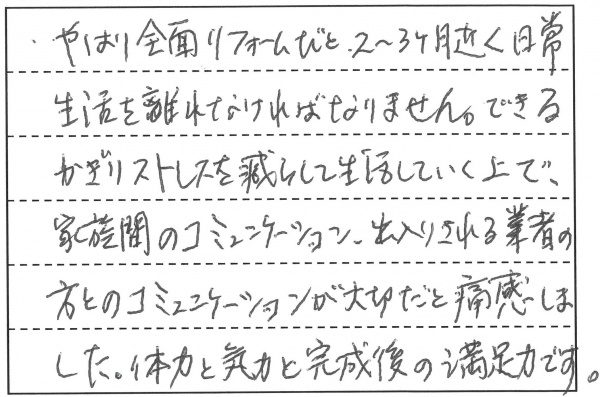 ・やはり全面リフォームだと、2〜3ヶ月近く日常
生活を離れなければなりません。できる
かぎりストレスを減らして生活していく上で、
家族間のコミュニケーション、出入りされる業者の
方とのコミュニケーションが大切だと痛感しま
した。体力と気力と完成後の満足力です。